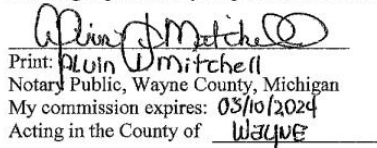 Alvin J Mitchell
Print: Alvin J Mitchell
Notary Public, Wayne County, Michigan
My commission expires: 03/10/2024
Acting in the County of Wayne